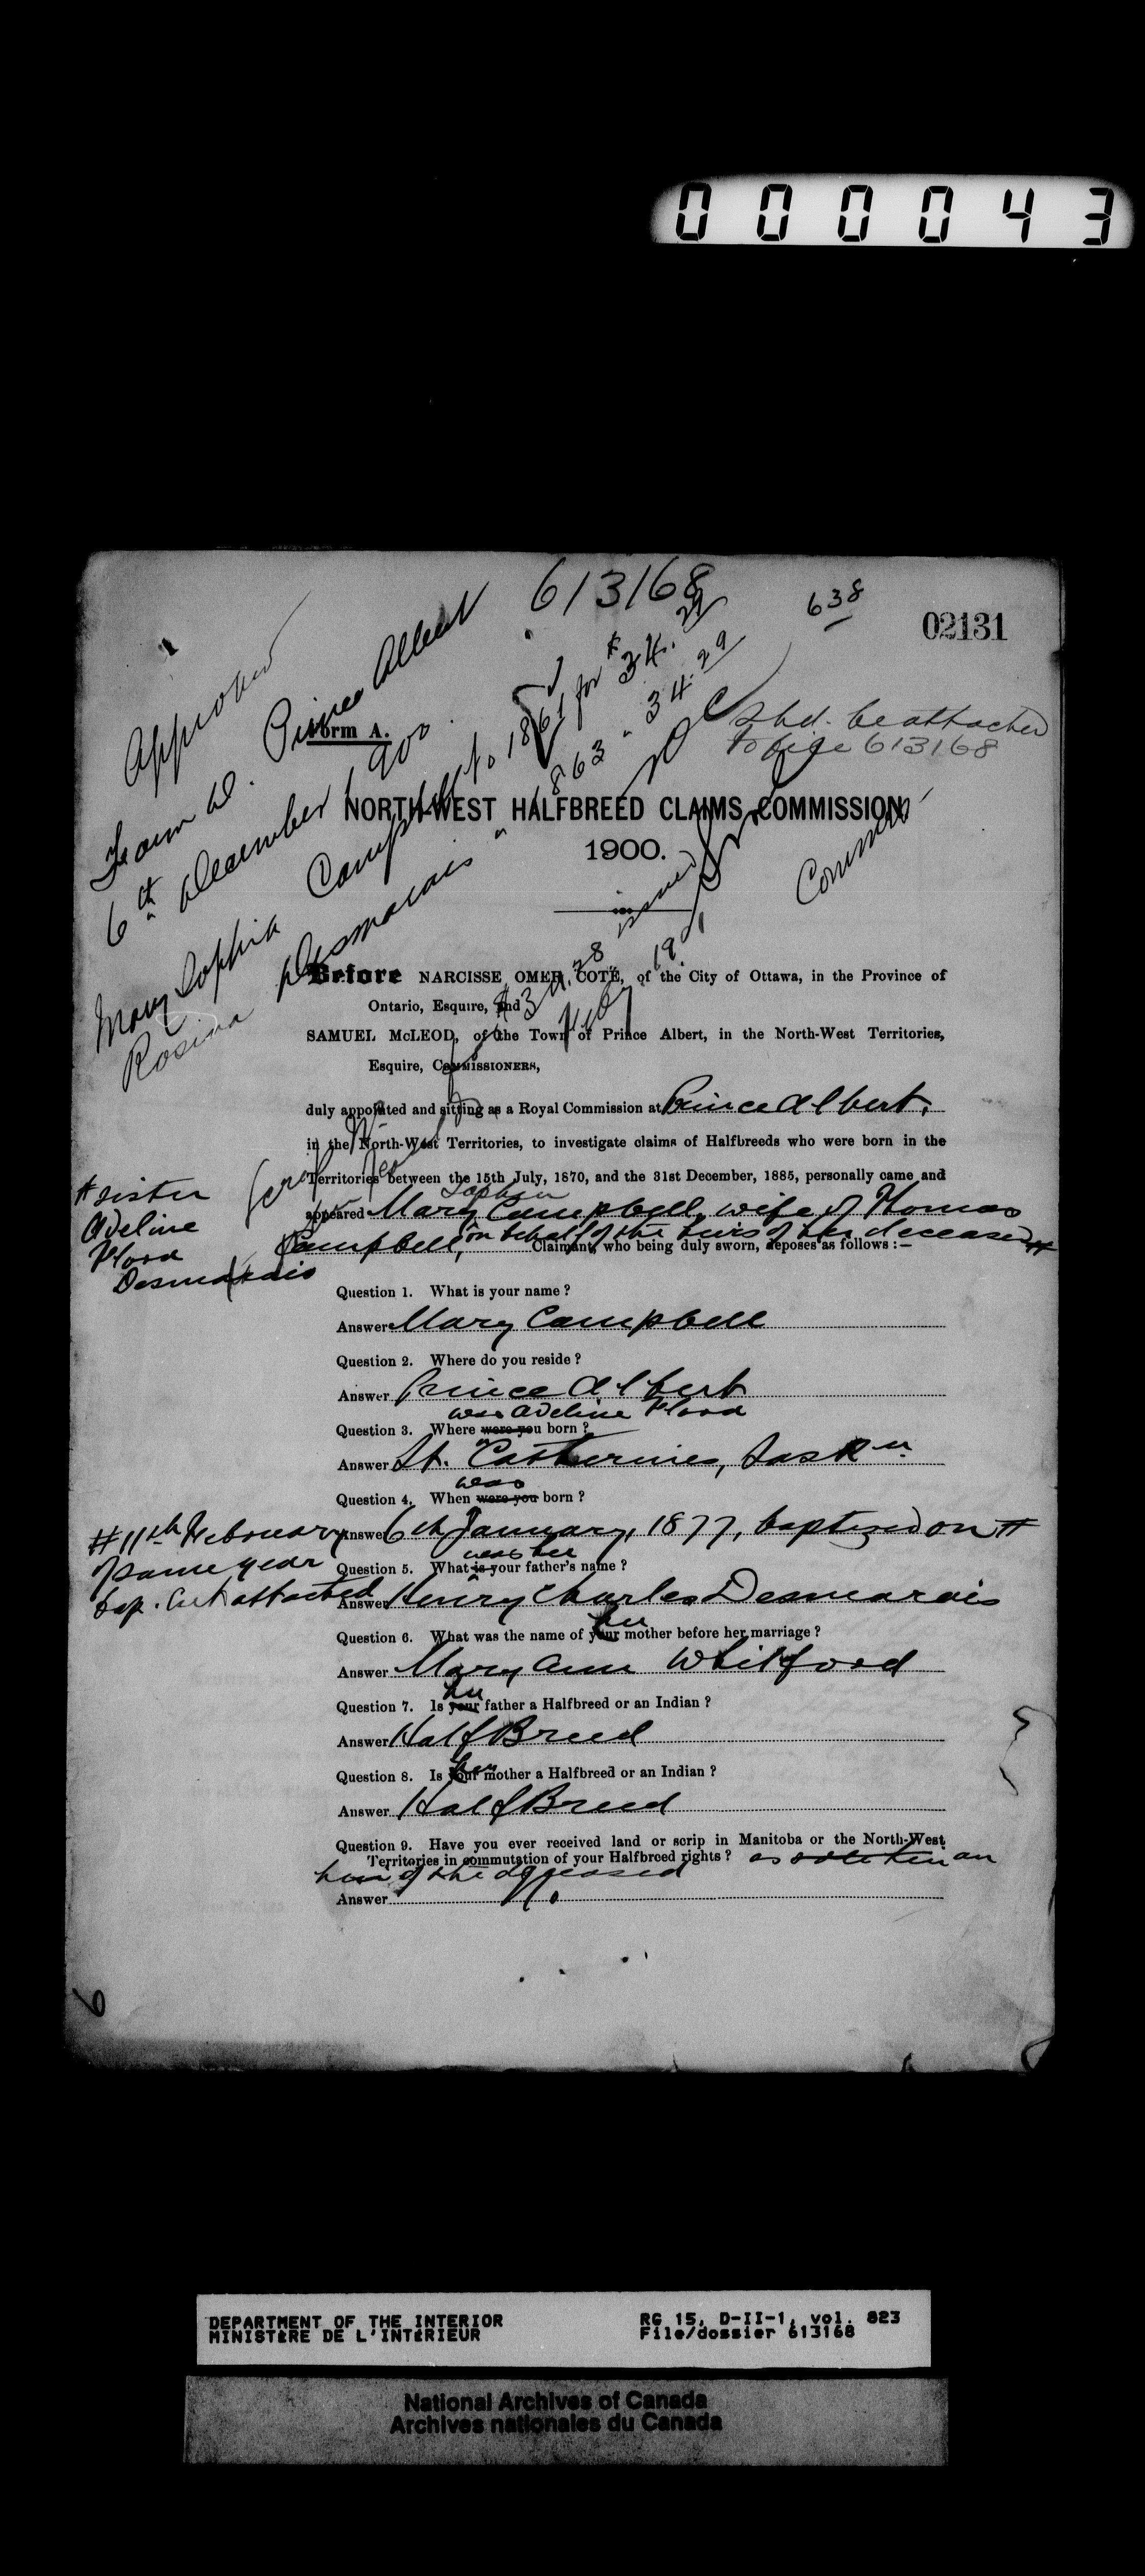 000043
613168
638
02131
Approved
Form D. Prince Albert
6th December 1900.
Mary Sophia Campbell No 1861 for $34.29
Rosina Desmarais " 1863 " 34.29
Shd. be attached
to file 613168
Form A.
NORTH-WEST HALFBREED CLAIMS COMMISSION
1900.
Before NARCISSE OMER COTÉ, of the City of Ottawa, in the Province of
Ontario, Esquire, and
SAMUEL McLEOD, of the Town of Prince Albert, in the North-West Territories,
Esquire, COMMISSIONERS,
duly appointed and sitting as a Royal Commission at Prince Albert,
in the North-West Territories, to investigate claims of Halfbreeds who were born in the
Territories between the 15th July, 1870, and the 31st December, 1885, personally came and
Sophia
appeared Mary Campbell, wife of Thomas
Campbell, on behalf of the heirs of her deceased #
Claimant, who being duly sworn, deposes as follows :—
# sister
Adeline
Flora
Desmarais
Question 1. What is your name ?
Answer Mary Campbell
Question 2. Where do you reside ?
Answer Prince Albert
was Adeline Flora
Question 3. Where were you born ?
Answer St. Catherines, Sask n
was
Question 4. When were you born ?
Answer 6th January, 1877, baptized on #
# 11th February
same year
bap. Cert attached
was her
Question 5. What is your father's name ?
Answer Henry Charles Desmarais
her
Question 6. What was the name of your mother before her marriage ?
Answer Mary Ann Whitford
her
Question 7. Is your father a Halfbreed or an Indian ?
Answer Half Breed
her
Question 8. Is your mother a Halfbreed or an Indian ?
Answer Half Breed
Question 9. Have you ever received land or scrip in Manitoba or the North-West
Territories in commutation of your Halfbreed rights ? as sole heir an
heir of the deceased
Answer No.
6
DEPARTMENT OF THE INTERIOR
MINISTÈRE DE L'INTÉRIEUR
RG 15, D-II-1, vol. 823
File/dossier 613168
National Archives of Canada
Archives nationales du Canada